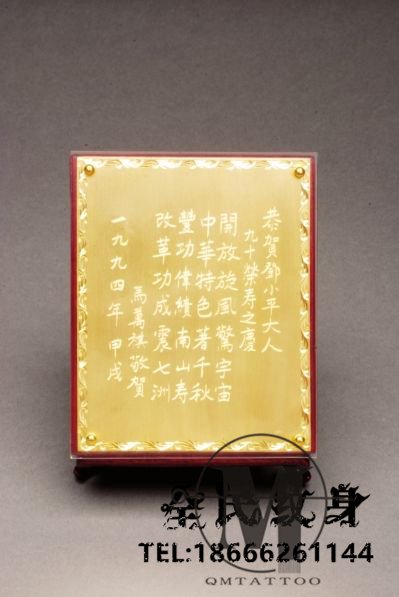 恭賀鄧小平大人
九十榮寿之慶
開放旋風驚宇宙
中華特色著千秋
豐功偉績南山寿
改革功成震七洲
馬萬祺敬賀
一九九四年 甲戌
全民纹身
TEL:18666261144
QMTATTOO